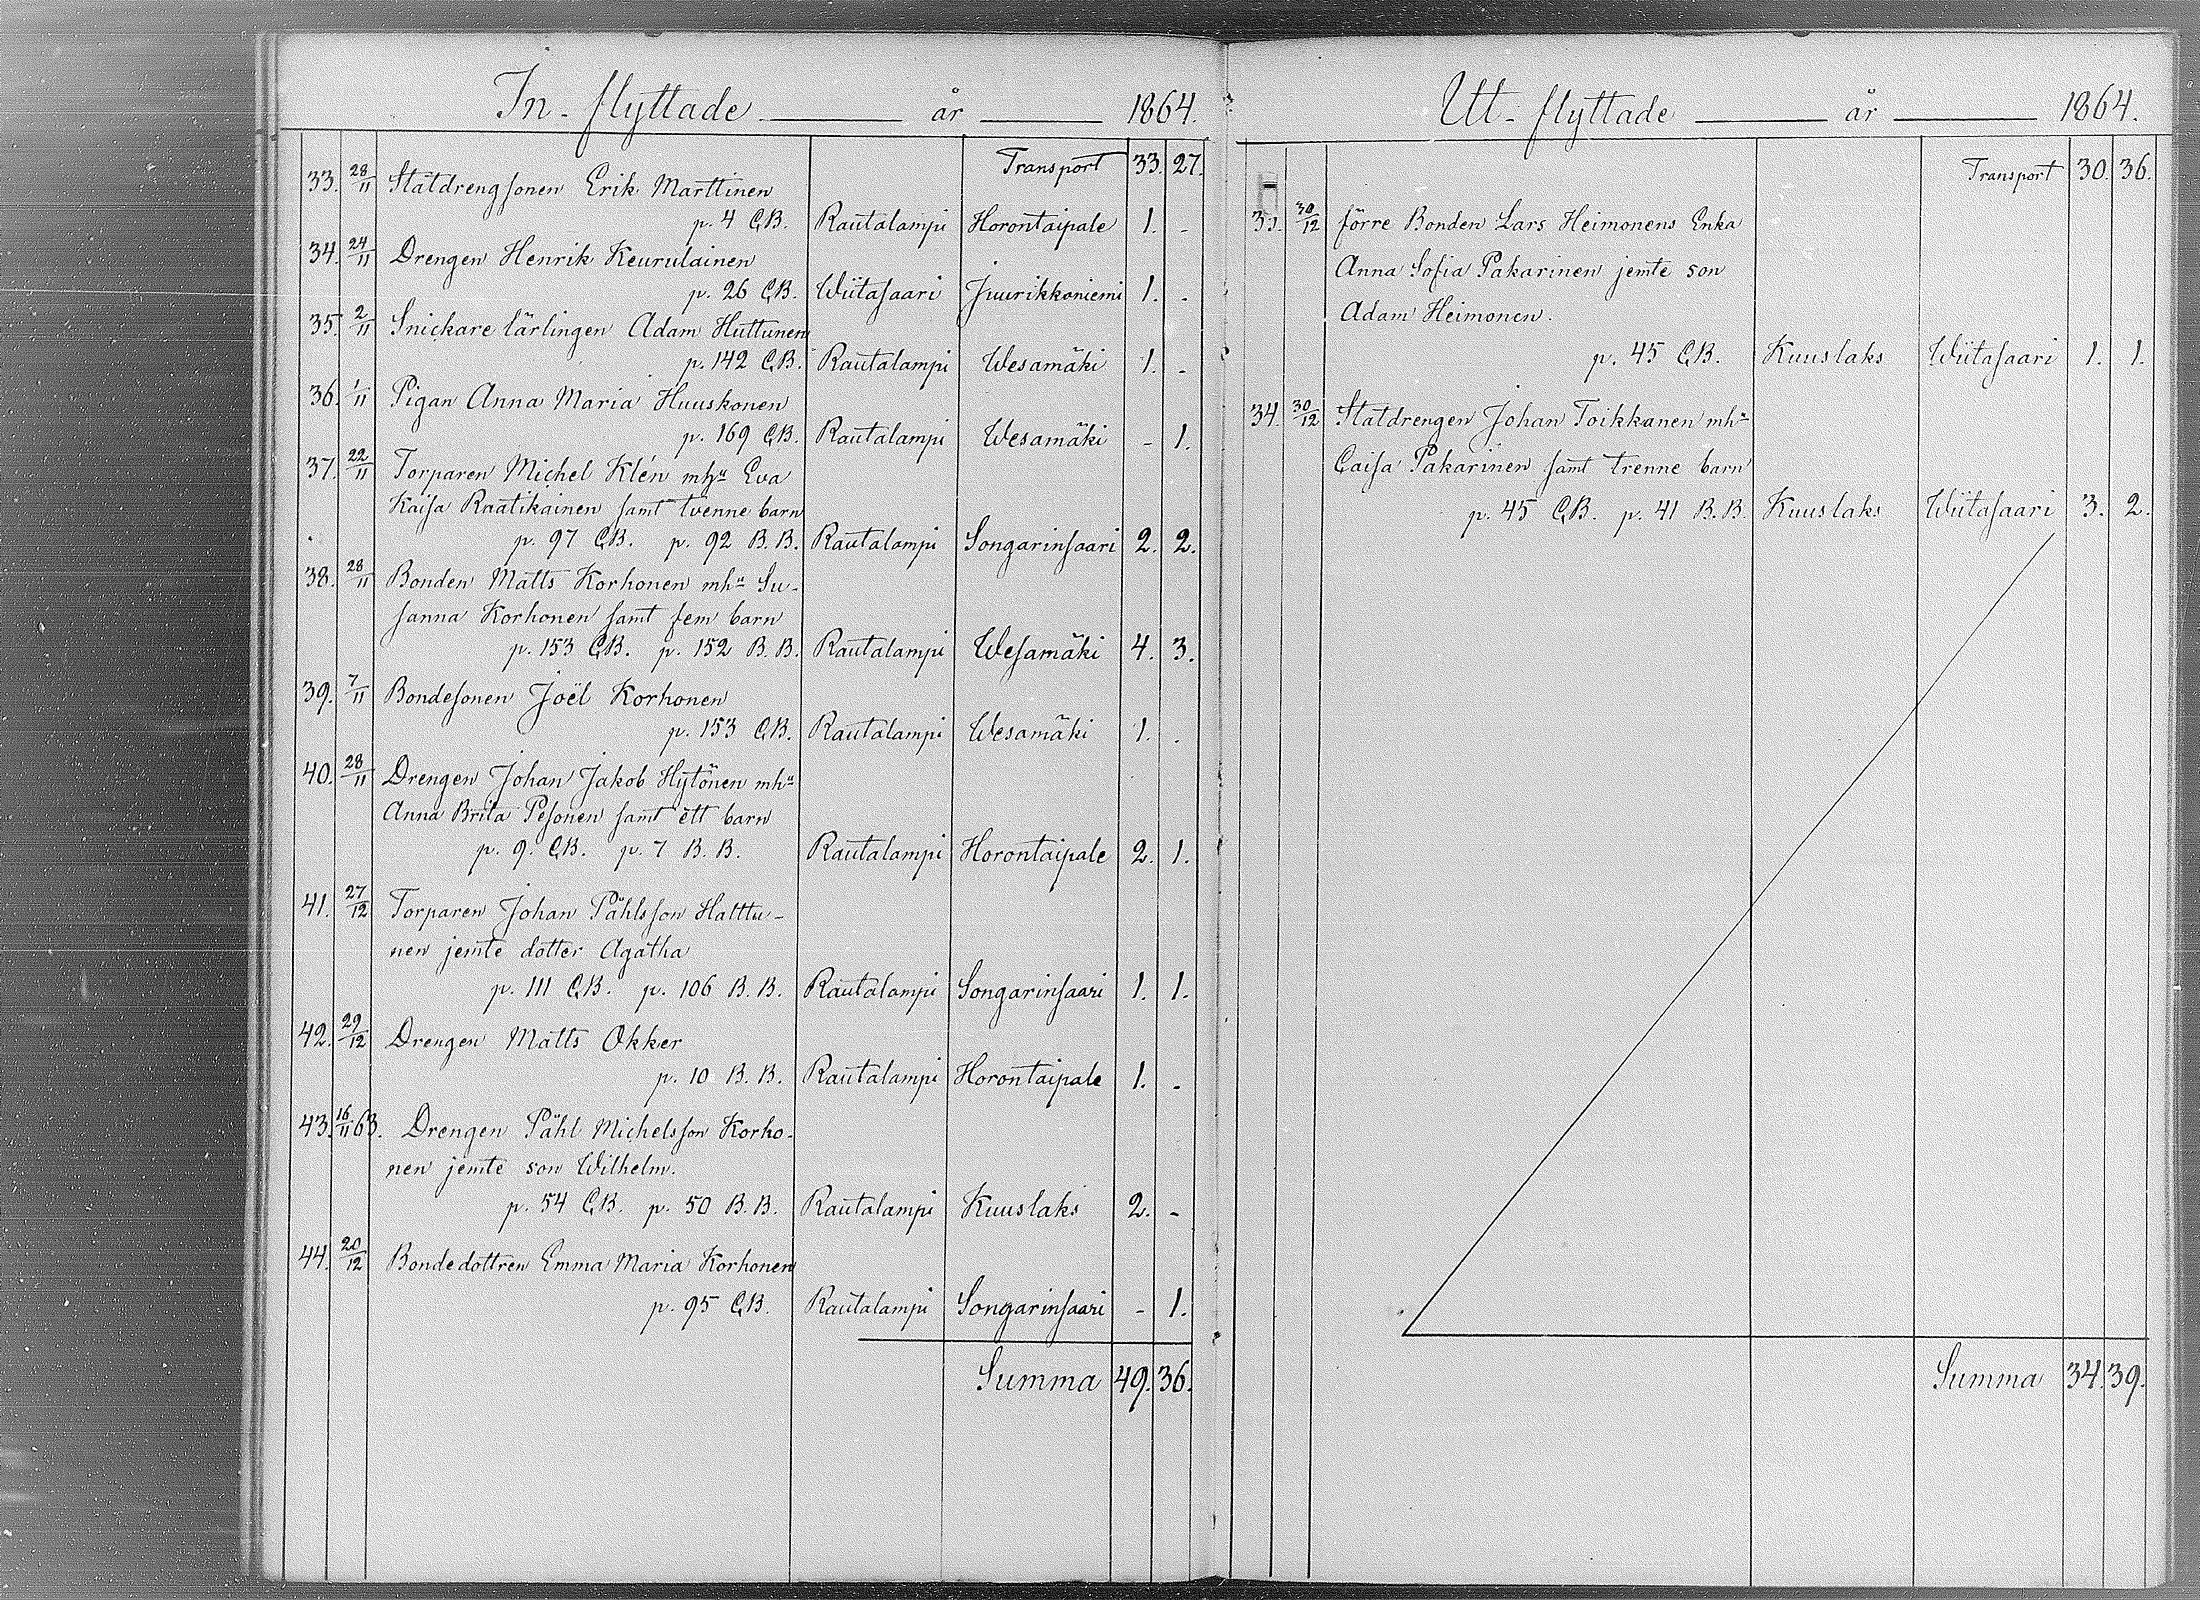 In-flyttade år 1864.
Transport 33. 27.
33. 28/11 Statdrengsonen Erik Marttinen
p. 4 C.B. Rautalampi Horontaipale 1. -
34. 24/11 Drengen Henrik Keurulainen
p. 26 C.B. Wiitasaari Juurikkoniemi 1. -
35. 2/11 Snickare lärlingen Adam Huttunen
p. 142 C.B. Rautalampi Wesamäki 1. -
36. 1/11 Pigan Anna Maria Huuskonen
p. 169 C.B. Rautalampi Wesamäki - 1.
37. 22/11 Torparen Michel Klén mhu Eva
Kaisa Raatikainen samt tvenne barn
p. 97 C.B. p. 92 B.B. Rautalampi Songarinsaari 2. 2.
38. 28/11 Bonden Matts Korhonen mhu Su-
sanna Korhonen samt fem barn
p. 153 C.B. p. 152 B.B. Rautalampi Wesamäki 4. 3.
39. 7/11 Bondesonen Joël Korhonen
p. 153 C.B. Rautalampi Wesamäki 1. -
40. 28/11 Drengen Johan Jakob Hytönen mhu
Anna Brita Pesonen samt ett barn
p. 9. C.B. p. 7 B.B. Rautalampi Horontaipale 2. 1.
41. 27/12 Torparen Johan Påhlsson Halttu-
nen jemte dotter Agatha
p. 111 C.B. p. 106 B.B. Rautalampi Songarinsaari 1. 1.
42. 29/12 Drengen Matts Okker
p. 10 B.B. Rautalampi Horontaipale 1. -
43. 16/11 63. Drengen Påhl Michelsson Korho-
nen jemte son Wilhelm.
p. 54 C.B. p. 50 B.B. Rautalampi Kuuslaks 2. -
44. 20/12 Bondedottren Emma Maria Korhonen
p. 95 C.B. Rautalampi Songarinsaari - 1.
Summa 49. 36.
Ut-flyttade år 1864.
Transport 30. 36.
33. 30/12 förre Bonden Lars Heimonens Enka
Anna Sofia Pakarinen jemte son
Adam Heimonen.
p. 45 C.B. Kuuslaks Wiitasaari 1. 1.
34. 30/12 Statdrengen Johan Toikkanen mhu
Caisa Pakarinen samt trenne barn
p. 45 C.B. p. 41 B.B. Kuuslaks Wiitasaari 3. 2.
Summa 34. 39.